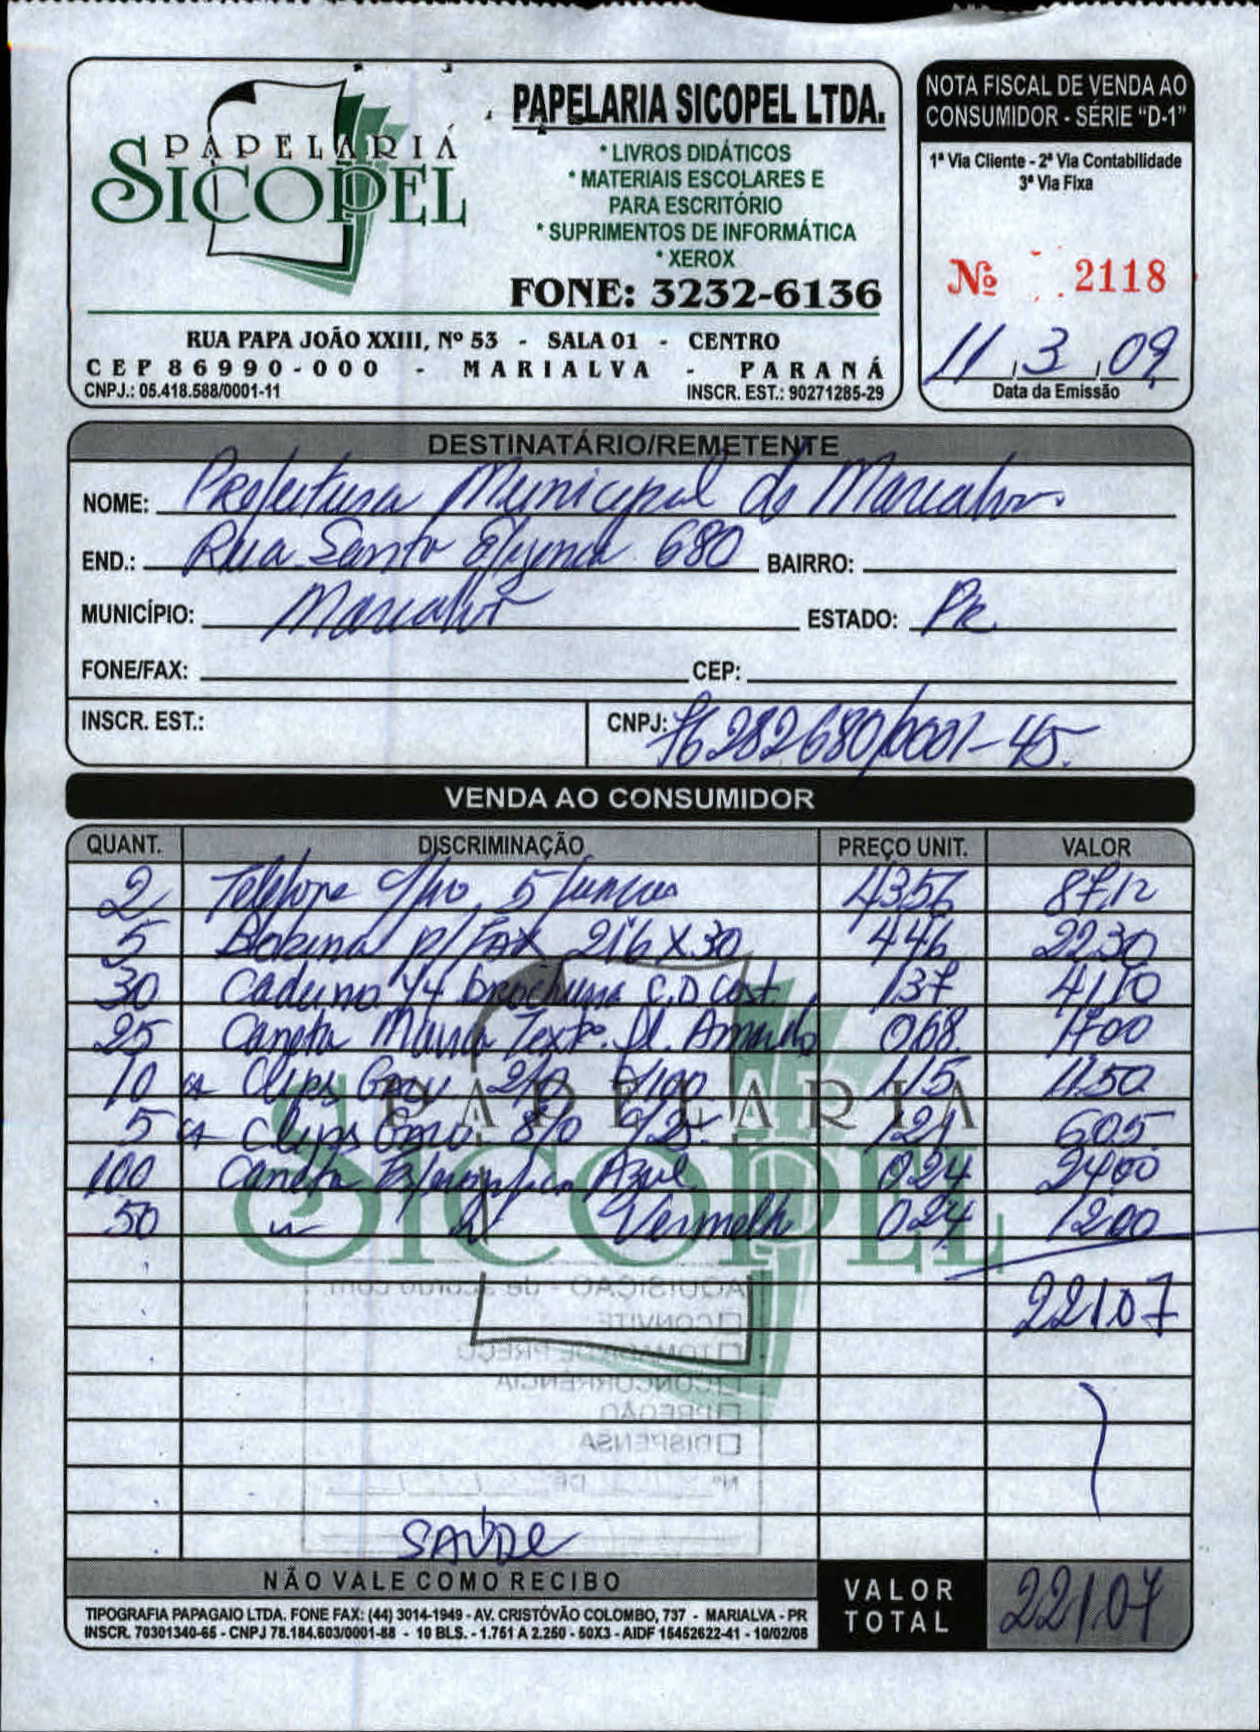 PAPELARIA
SICOPEL
PAPELARIA SICOPEL LTDA.
* LIVROS DIDÁTICOS
* MATERIAIS ESCOLARES E
PARA ESCRITÓRIO
* SUPRIMENTOS DE INFORMÁTICA
* XEROX
FONE: 3232-6136
RUA PAPA JOÃO XXIII, Nº 53 - SALA 01 - CENTRO
CEP 86990-000 - MARIALVA - PARANÁ
CNPJ.: 05.418.588/0001-11 INSCR. EST.: 90271285-29
NOTA FISCAL DE VENDA AO
CONSUMIDOR - SÉRIE "D-1"
1ª Via Cliente - 2ª Via Contabilidade
3ª Via Fixa
Nº 2118
11, 3, 09
Data da Emissão
DESTINATÁRIO/REMETENTE
NOME: Prefeitura Municipal de Marialva
END.: Rua Santa Efigenia 680 BAIRRO:
MUNICÍPIO: Marialva ESTADO: Pr.
FONE/FAX: CEP:
INSCR. EST.: CNPJ: 76282680/0001-45.
VENDA AO CONSUMIDOR
QUANT. DISCRIMINAÇÃO PREÇO UNIT. VALOR
2 Telefone 5 funcoes 4356 87,12
5 Bobina p/ FAX 216 X 30 446 2230
30 Caderno 1/4 brochura C.D Cost. 137 4110
25 Caneta Marca Texto. Fl. Amarelo 068 1700
10 cx Clips Galv. 2/0 c/100 115 1150
5 cx Clips Galv. 8/0 c/25 121 605
100 Caneta Esferografica Azul 024 2400
50 " " Vermelha 024 1200
221,07
AQUISIÇÃO - de acordo com
CONVITE
TOMADA DE PREÇO
CONCORRÊNCIA
PREGÃO
DISPENSA
Nº DE
SAÚDE
NÃO VALE COMO RECIBO
VALOR TOTAL 221,07
TIPOGRAFIA PAPAGAIO LTDA. FONE FAX: (44) 3014-1949 - AV. CRISTÓVÃO COLOMBO, 737 - MARIALVA - PR
INSCR. 70301340-65 - CNPJ 78.184.603/0001-88 - 10 BLS. - 1.751 A 2.250 - 50X3 - AIDF 15452622-41 - 10/02/08